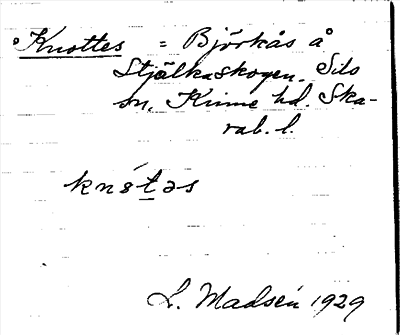 °Knottes = Björkås å
Stjälkaskogen. Sils
sn. Kinne hd. Ska-
rab. l.
knótəs
L. Madsén 1929